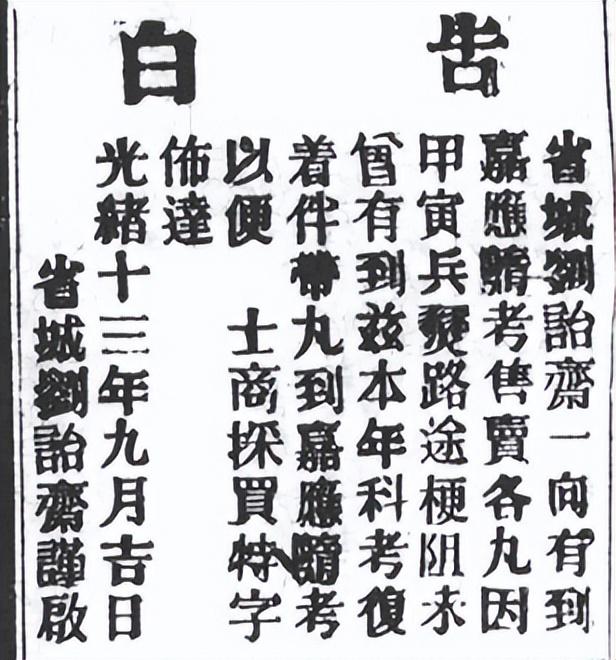 告白
省城劉詒齋一向有到
嘉應隨考售賣各丸因
甲寅兵燹路途梗阻未
曾有到茲本年科考復
着伴帶丸到嘉應隨考
以便 士商採買特字
佈達
光緒十三年九月吉日
省城劉詒齋謹啟